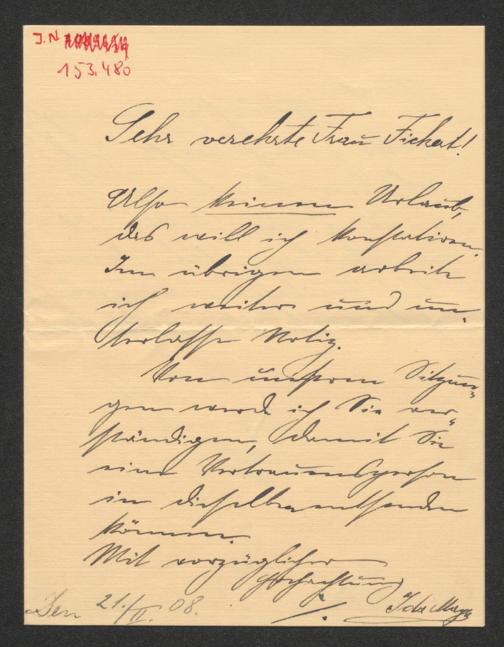 J.N
153.480
Sehr verehrte Frau Fickert!
Also keinen Urlaub,
das will ich konstatiren.
Im übrigen arbeite
ich weiter und un-
terlasse Notiz.
Von unseren Sitzun-
gen werd ich Sie ver-
ständigen, damit Sie
eine Vertrauensperson
in dieselben entsenden
können.
Mit vorzüglicher
Hochachtung
Ida Mayer
21./II. 08.